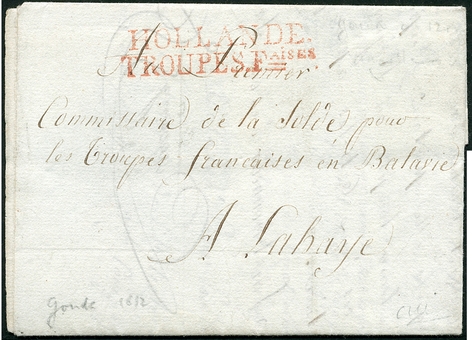 HOLLANDE.
TROUPES.F.NAISES
Commissaire de la Solde pour
les Troupes francaises en Batavie
A Lahaye
Gouda 1812